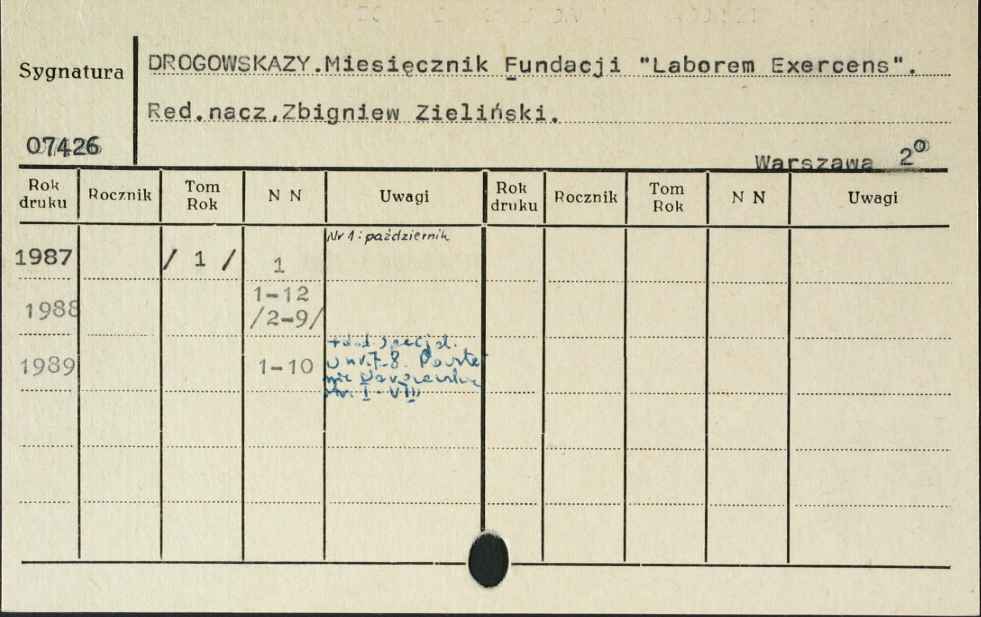 Sygnatura
DROGOWSKAZY.Miesięcznik Fundacji "Laborem Exercens".
Red.nacz.Zbigniew Zieliński.
07426
Warszawa 2°
Rok druku Rocznik Tom Rok N N Uwagi Rok druku Rocznik Tom Rok N N Uwagi
1987 / 1 / 1 Nr 1: październik
1988 1-12
/2-9/
1989 1-10
w nr. 7-8.
I - VIII